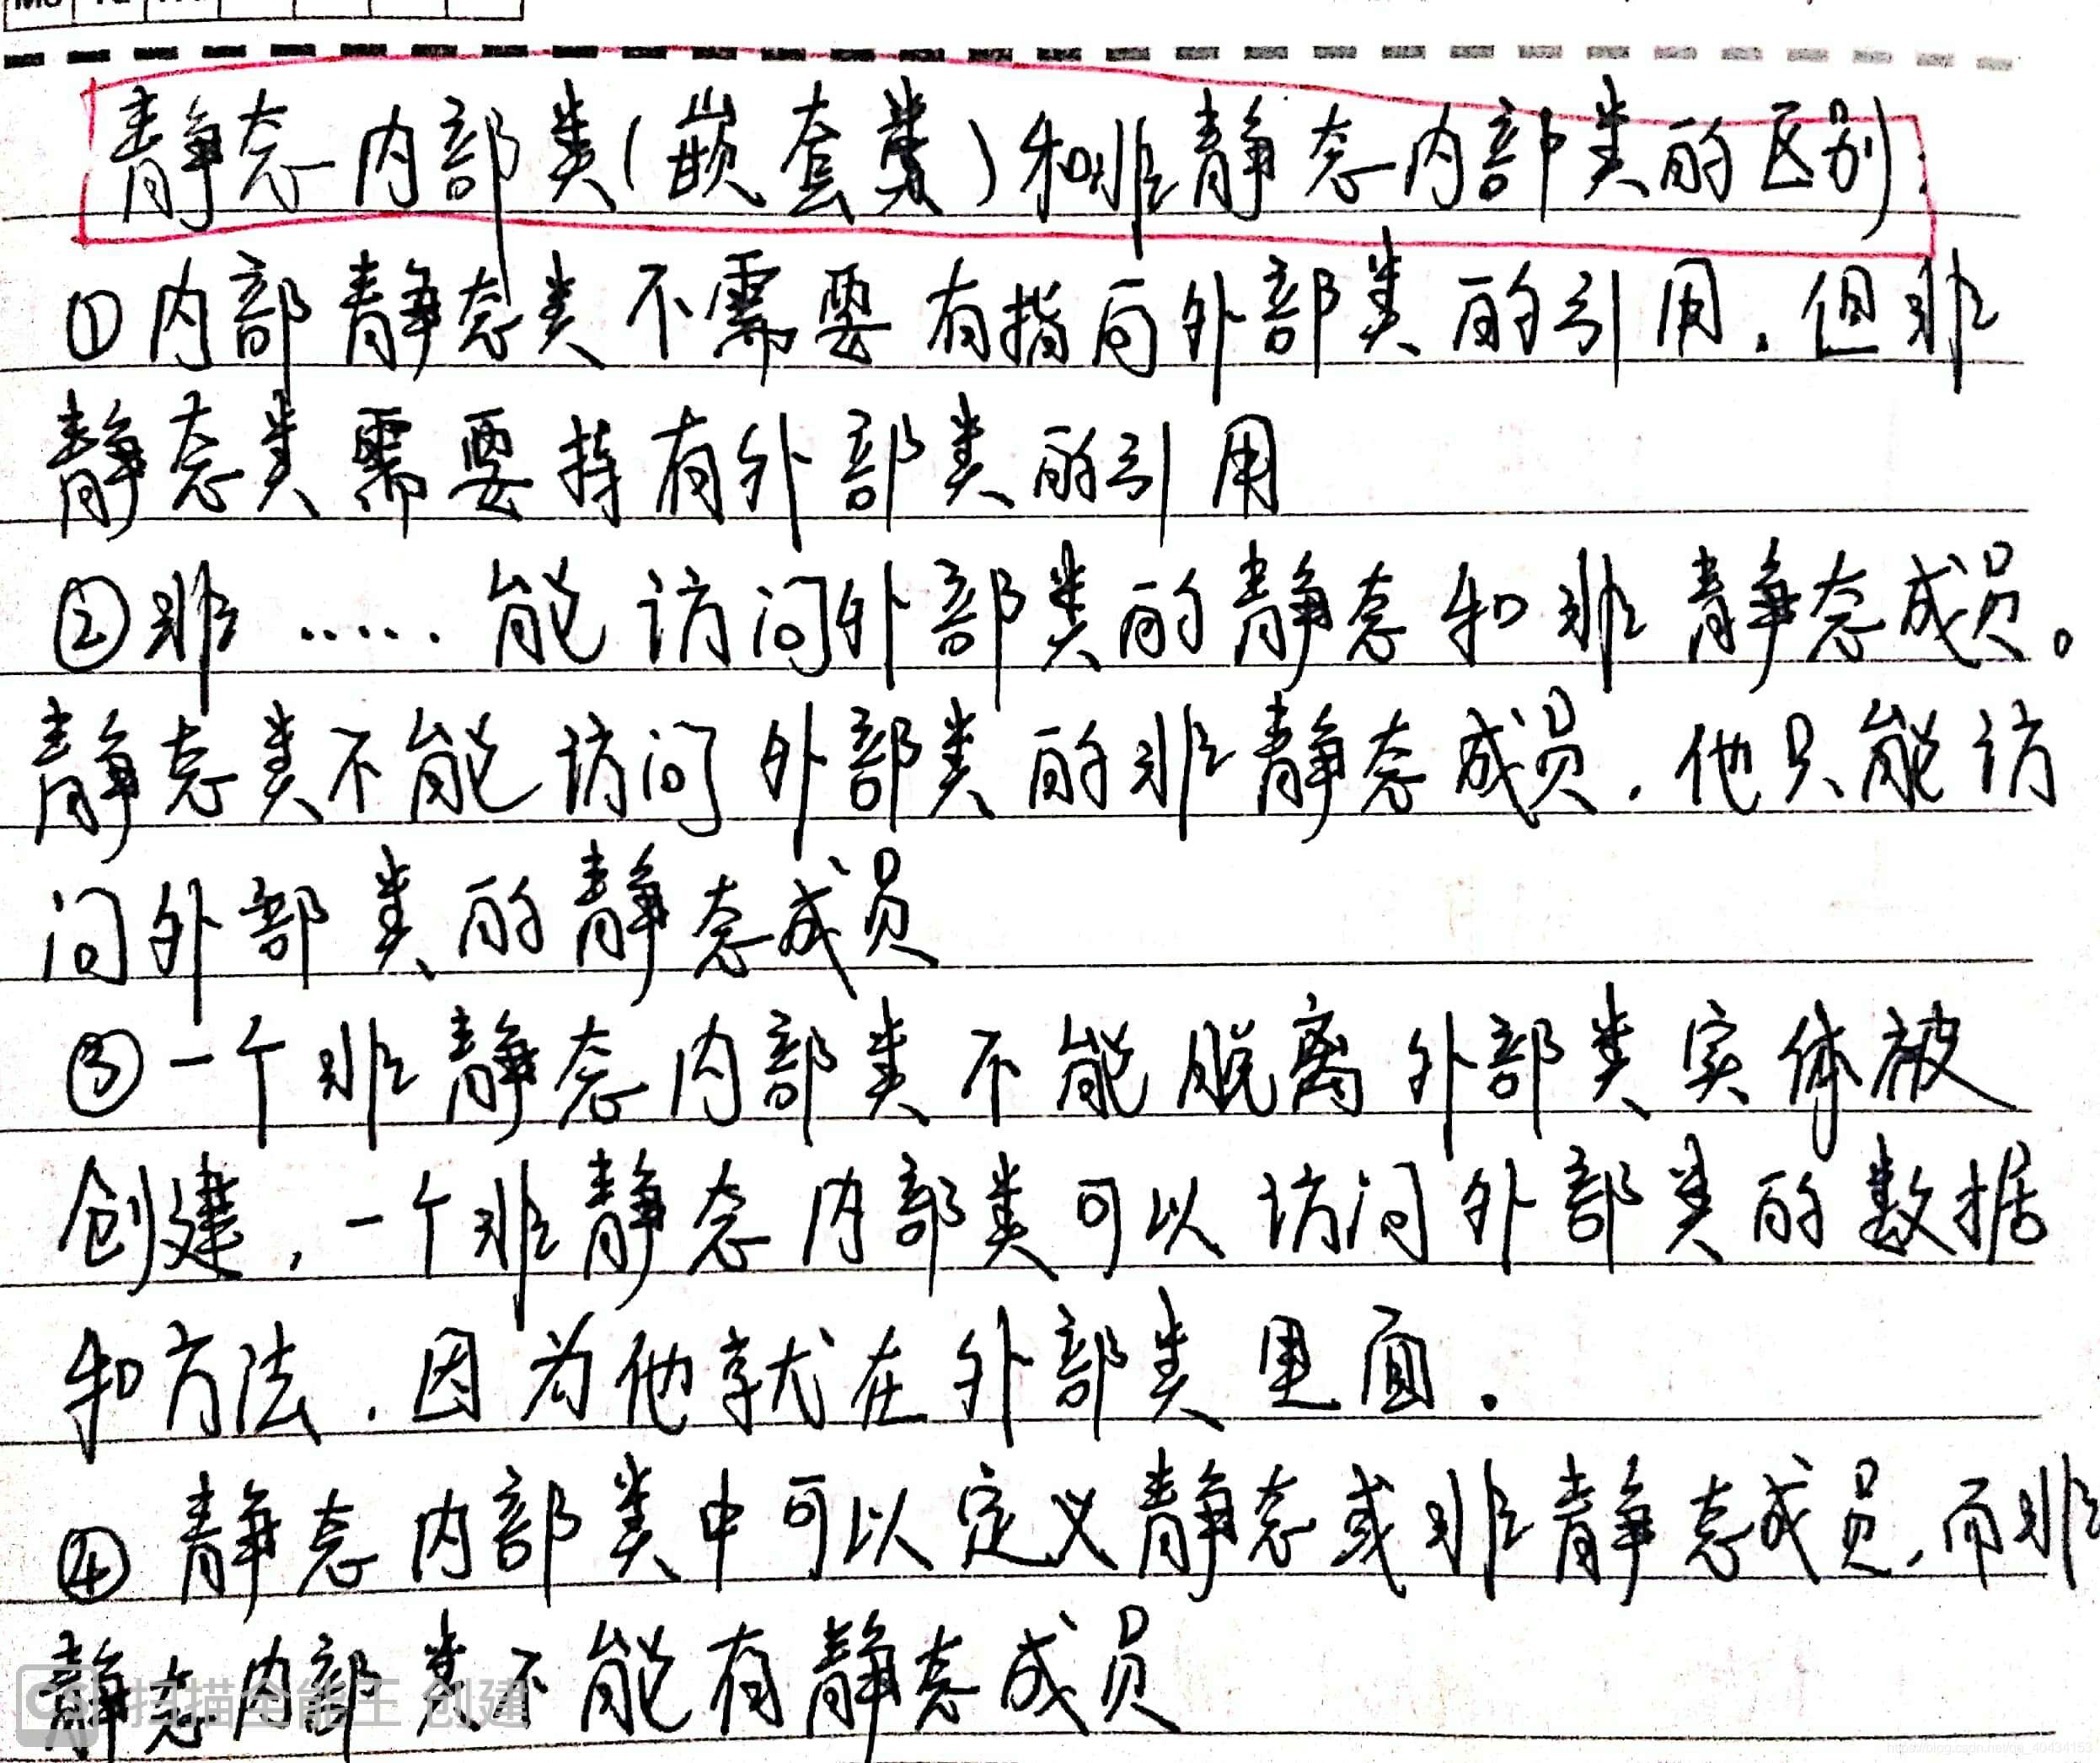 静态内部类(嵌套类)和非静态内部类的区别:
①内部静态类不需要有指向外部类的引用.但非
静态类需要持有外部类的引用
②非.....能访问外部类的静态和非静态成员。
静态类不能访问外部类的非静态成员.他只能访
问外部类的静态成员
③一个非静态内部类不能脱离外部类实体被
创建,一个非静态内部类可以访问外部类的数据
和方法.因为他就在外部类里面.
④静态内部类中可以定义静态或非静态成员,而非
静态内部类不能有静态成员
CS 扫描全能王 创建